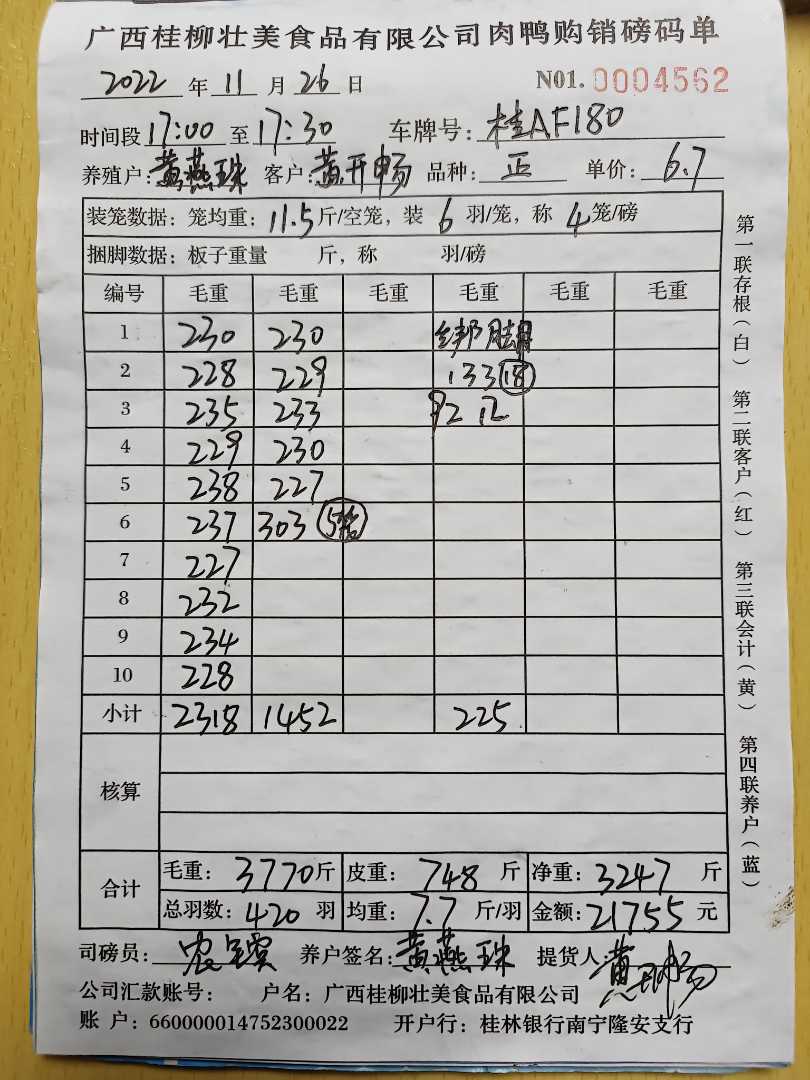 广西桂柳壮美食品有限公司肉鸭购销磅码单
2022 年 11 月 26 日 N01. 0004562
时间段 17:00 至 17:30 车牌号: 桂AF180
养殖户: 黄燕珠 客户: 黄开畅 品种: 正 单价: 6.7
装笼数据: 笼均重: 11.5 斤/空笼, 装 6 羽/笼, 称 4 笼/磅
捆脚数据: 板子重量 斤, 称 羽/磅
编号 毛重 毛重 毛重 毛重 毛重 毛重
1 230 230 绑脚
2 228 229 133 18
3 235 233 92 12
4 229 230
5 238 227
6 237 303 5笼
7 227
8 232
9 234
10 228
小计 2318 1452 225
核算
合计
毛重: 3770 斤 皮重: 748 斤 净重: 3247 斤
总羽数: 420 羽 均重: 7.7 斤/羽 金额: 21755 元
司磅员: 养户签名: 黄燕珠 提货人: 黄开畅
公司汇款账号: 户名: 广西桂柳壮美食品有限公司
账 户: 660000014752300022 开户行: 桂林银行南宁隆安支行
第一联存根(白) 第二联客户(红) 第三联会计(黄) 第四联养户(蓝)